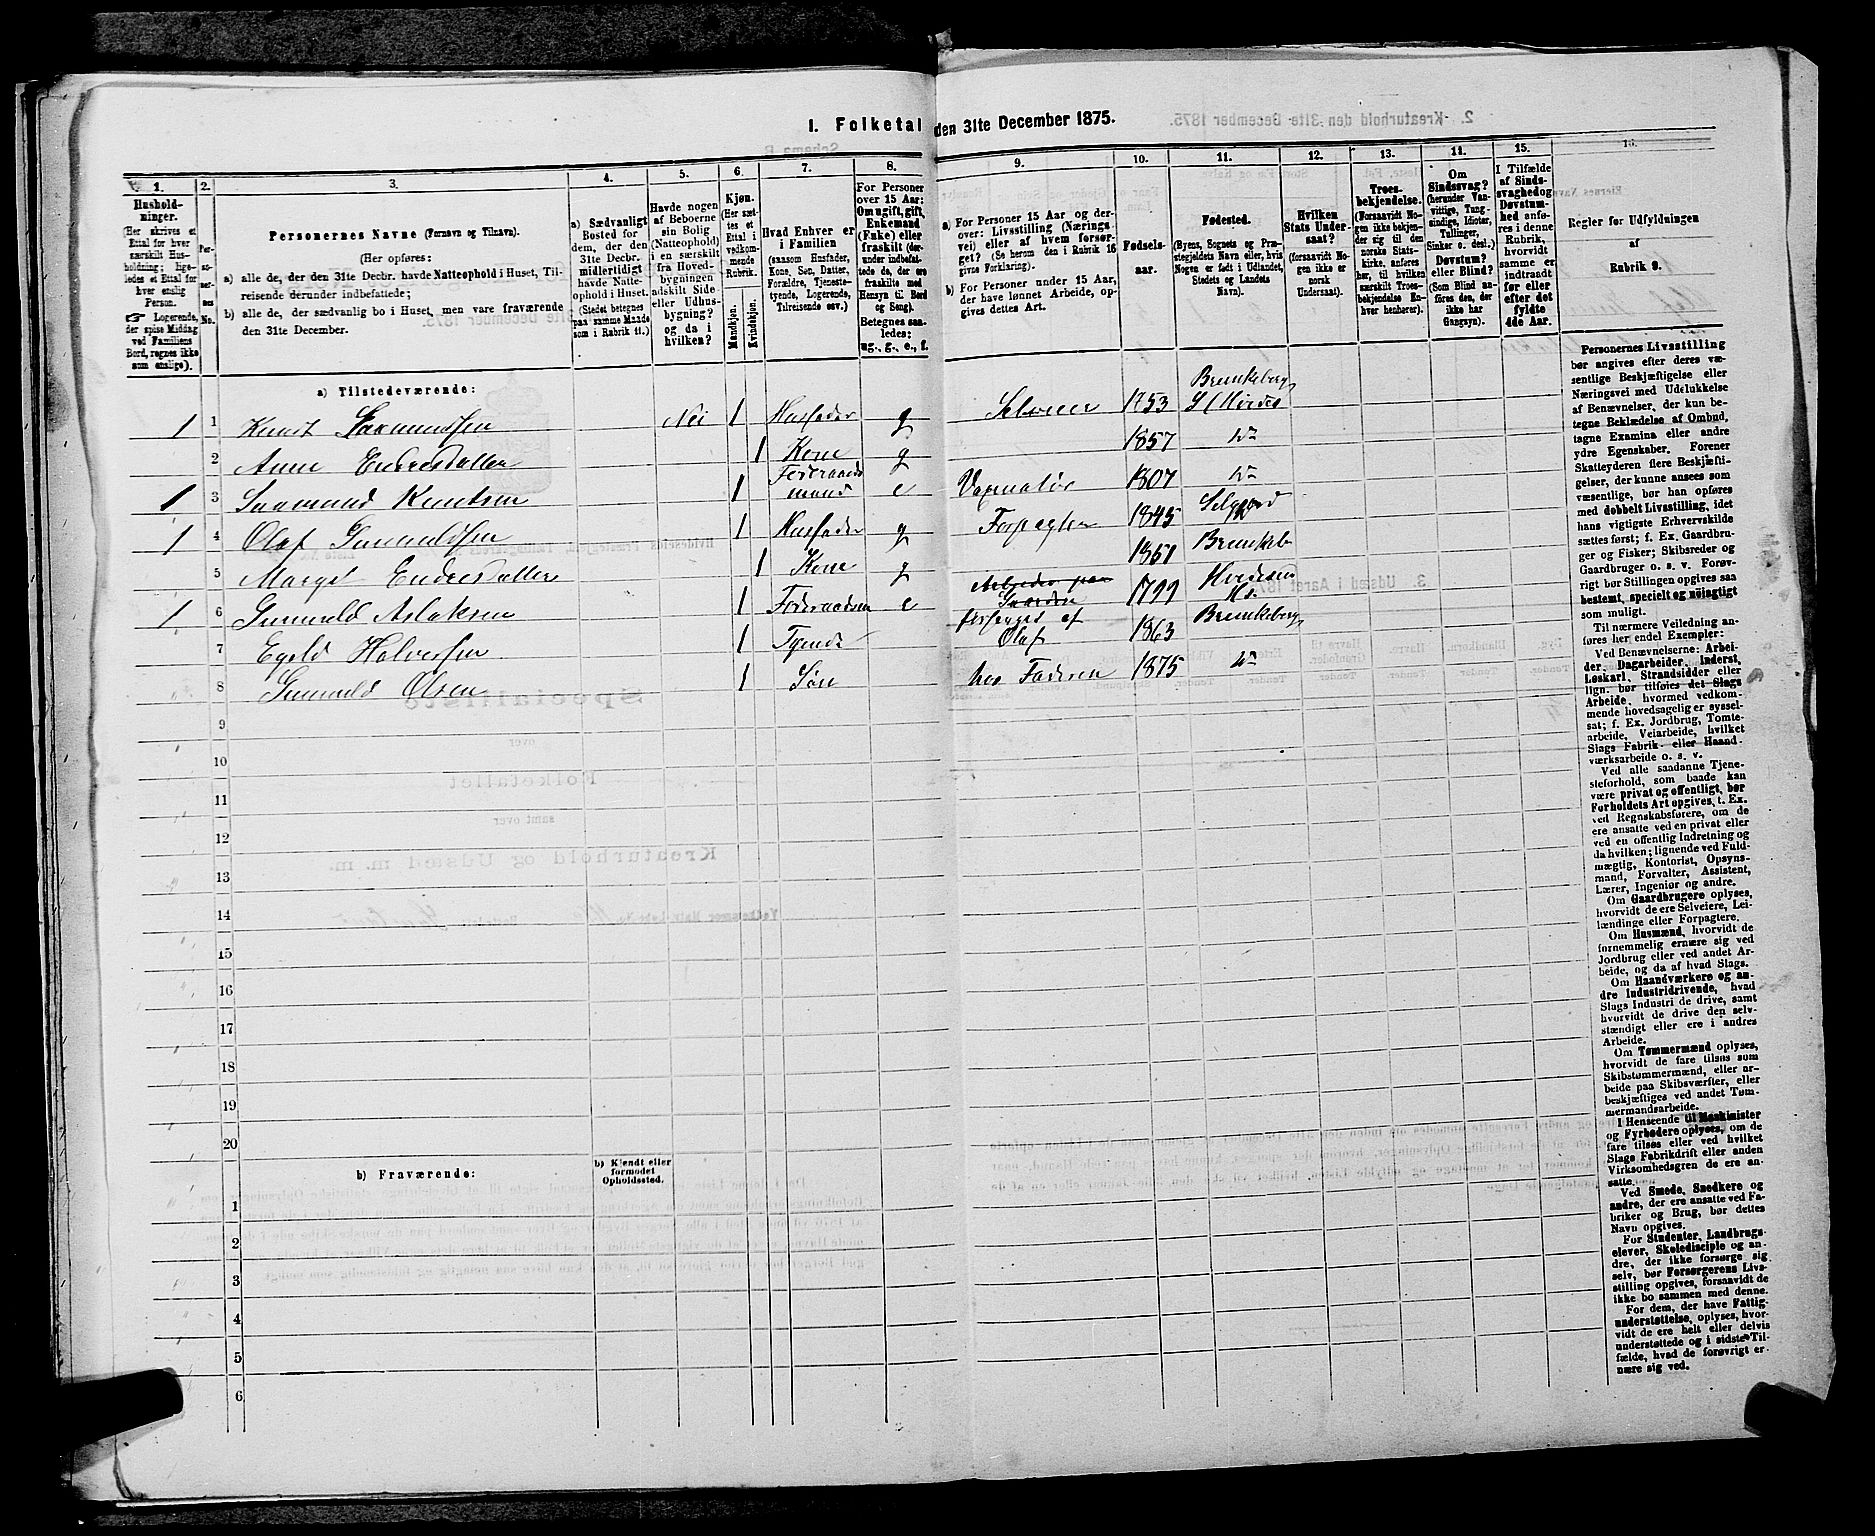 1. Folketal den 31te December 1875.
1.
Hushold-
ninger.
(Her skrives et
Ettal for hver
særskilt Hus-
holdning; lige-
ledes et Ettal for
hver enslig
Person.
☞ Logerende,
der spise Middag
ved Familiens
Bord, regnes ikke
som enslige).
2.
Per-
so-
ner-
nes
No.
3.
Personernes Navne (Fornavn og Tilnavn).
(Her opføres:
a) alle de, der den 31te Decbr. havde Natteophold i Huset, Til-
reisende derunder indbefattede;
b) alle de, der sædvanlig bo i Huset, men vare fraværende
den 31te December.
4.
a) Sædvanligt
Bosted for
dem, der den
31te Decbr.
midlertidigt
havde Natte-
ophold i Huset.
(Stedet betegnes
paa samme Maade
som i Rubrik 11.)
5.
Havde nogen
af Beboerne
sin Bolig
(Natteophold)
i en særskilt
fra Hoved-
bygningen
adskilt Side
eller Udhus-
bygning?
og da i
hvilken?
6.
Kjøn.
(Her sæt-
tes et
Ettal i
vedkom-
mende
Rubrik.
Mandkjøn.
Kvindekjøn.
7.
Hvad Enhver er
i Familien
(saasom Husfader,
Kone, Søn, Datter,
Forældre, Tjeneste-
tyende, Logerende,
Tilreisende osv.)
8.
For Personer
over 15 Aar:
Om ugift, gift,
Enkemand
(Enke) eller
fraskilt (der-
under indbefat-
tede de, der ere
fraskilte med
Hensyn til Bord
og Seng).
Betegnes saa-
ledes:
ug., g., e., f.
9.
a) For Personer 15 Aar og der-
over: Livsstilling (Nærings-
vei) eller af hvem forsør-
get? (Se herom den i Rubrik 16
givne Forklaring).
b) For Personer under 15 Aar,
der have lønnet Arbeide, op-
gives dettes Art.
10.
Fødsels-
aar.
11.
Fødested.
(Byens, Sognets og Præ-
stegjeldets Navn eller, hvis
Nogen er født i Udlandet,
Stedets og Landets
Navn).
12.
Hvilken
Stats Under-
saat?
(forsaavidt No-
gen ikke er
norsk
Undersaat).
13.
Troes-
bekjendelse.
(Forsaavidt No-
gen ikke bekjen-
der sig til den
norske Stats-
kirke, anføres
her, til hvilken
særskilt Troes-
bekjendelse En-
hver henhører).
14.
Om
Sindssvag?
(herunder Van-
vittige, Tung-
sindige, Idioter,
Tullinger,
Sinker o. desl.)
Døvstum?
eller Blind?
(Som Blind an-
føres den, der
ikke har
Gangsyn).
15.
I Tilfælde
af Sinds-
svaghed og
Døvstum-
hed anfø-
res i denne
Rubrik,
hvorvidt
samme er
indtraadt
før eller
efter det
fyldte
4de Aar.
16.
Regler for Udfyldningen
af
Rubrik 9.
a) Tilstedeværende:
1 1 Knut Saamundsen Nei 1 Husfader g Selveier 1753 Brunkeberg S/ Hvides
2 Anne Endresdatter 1 Kone g 1857 do
1 3 Saamund Knutsen 1 Føderaads mand e 1807 do
1 4 Olaf Gunuldsen 1 Husfader g Forpagter 1845
5 Margit Endresdatter 1 Kone g 1851 Brunkeb
1 6 Gunuld Aslaksen 1 Føderaadsm e Arbeider paa Gaarden 1799 Hvidesei
7 Egeld Halvorsen 1 Tyende forsørges af Olaf 1863 Brunkeberg
8 Gunuld Olsen 1 Søn hos Faderen 1875 do
9
10
11
12
13
14
15
16
17
18
19
20
b) Fraværende:
b) Kjendt eller
formodet
Opholdssted.
1
2
3
4
5
6
Personernes Livsstilling
bør angives efter deres væ-
sentlige Beskjæftigelse eller
Næringsvei med Udelukkelse
af Benævnelser, der kun be-
tegne Beklædelse af Ombud,
tagne Examina eller andre
ydre Egenskaber. Forener
Skatteyderen flere Beskjæfti-
gelser, der kunne ansees som
væsentlige, bør han opføres
med dobbelt Livsstilling, idet
hans vigtigste Erhvervskilde
sættes først; f. Ex. Gaardbru-
ger og Fisker; Skibsreder og
Gaardbruger o. s. v. Forøv-
rigt bør Stillingen opgives saa
bestemt, specielt og nøiagtigt
som muligt.
Til nærmere Veiledning an-
føres her endel Exempler:
Ved Benævnelserne: Arbei-
der, Dagarbeider, Inderst,
Løskarl, Strandsidder eller
lign. bør tilføres det Slags
Arbeide, hvormed vedkom-
mende hovedsagelig er syssel-
sat; f. Ex. Jordbrug, Tomte-
arbeide, Veiarbeide, hvilket
Slags Fabrik- eller Haand-
værksarbeide o. s. v.
Ved alle saadanne Tjene-
steforhold, som baade kan
være privat og offentligt, bør
Forholdets Art opgives, t. Ex.
ved Regnskabsførere, om de
ere ansatte ved en privat eller
ved en offentlig Indretning og
da hvilken; lignende ved Fuld-
mægtig, Kontorist, Opsyns-
mand, Forvalter, Assistent,
Lærer, Ingeniør og andre.
Om Gaardbrugere oplyses,
hvorvidt de ere Selveiere, Lei-
lændinge eller Forpagtere.
Om Husmænd, hvorvidt de
fornemmelig ernære sig ved
Jordbrug eller ved andet Ar-
beide, og da af hvad Slags.
Om Haandværkere og an-
dre Industridrivende, hvad
Slags Industri de drive, samt
hvorvidt de drive den selv-
stændigt eller ere i andres
Arbeide.
Om Tømmermænd oplyses,
hvorvidt de fare tilsøs som
Skibstømmermænd, eller ar-
beide paa Skibsværfter, eller
beskjæftiges ved andet Tøm-
mermandsarbeide.
I Henseende til Maskinister
og Fyrbødere oplyses, om de
fare tilsøs eller ved hvilket
Slags Fabrikdrift eller anden
Virksomhedsgren de ere an-
satte.
Ved Smede, Snedkere og
andre, der ere ansatte ved Fa-
briker og Brug, bør dettes
Navn opgives.
For Studenter, Landbrugs-
elever, Skoledisciple og an-
dre, der ikke forsørge sig
selv, bør Forsørgerens Livs-
stilling opgives, forsaavidt de
ikke bo sammen med denne.
For dem, der have Fattig-
understøttelse, oplyses, hvor-
vidt de ere helt eller delvis
understøttede og i sidste Til-
fælde, hvad de forøvrigt er-
nære sig ved.